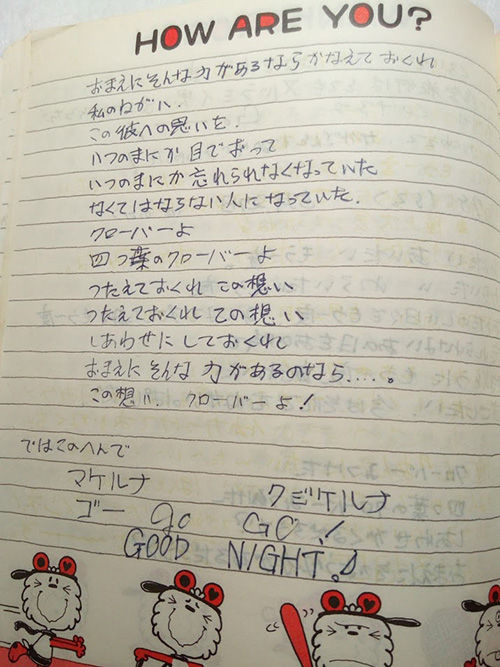 HOW ARE YOU?
おまえにそんな力があるならかなえておくれ
私のねがい.
この彼への思いを.
いつのまにか目でおって
いつのまにか忘れられなくなっていた
なくてはならない人になっていた.
クローバーよ
四つ葉のクローバーよ
つたえておくれ この想い
つたえておくれ この想い
しあわせにしておくれ
おまえにそんな力があるのなら.....。
この想い. クローバーよ!
ではこのへんで
マケルナ クジケルナ
ゴー go GO!
GOOD NIGHT.♪